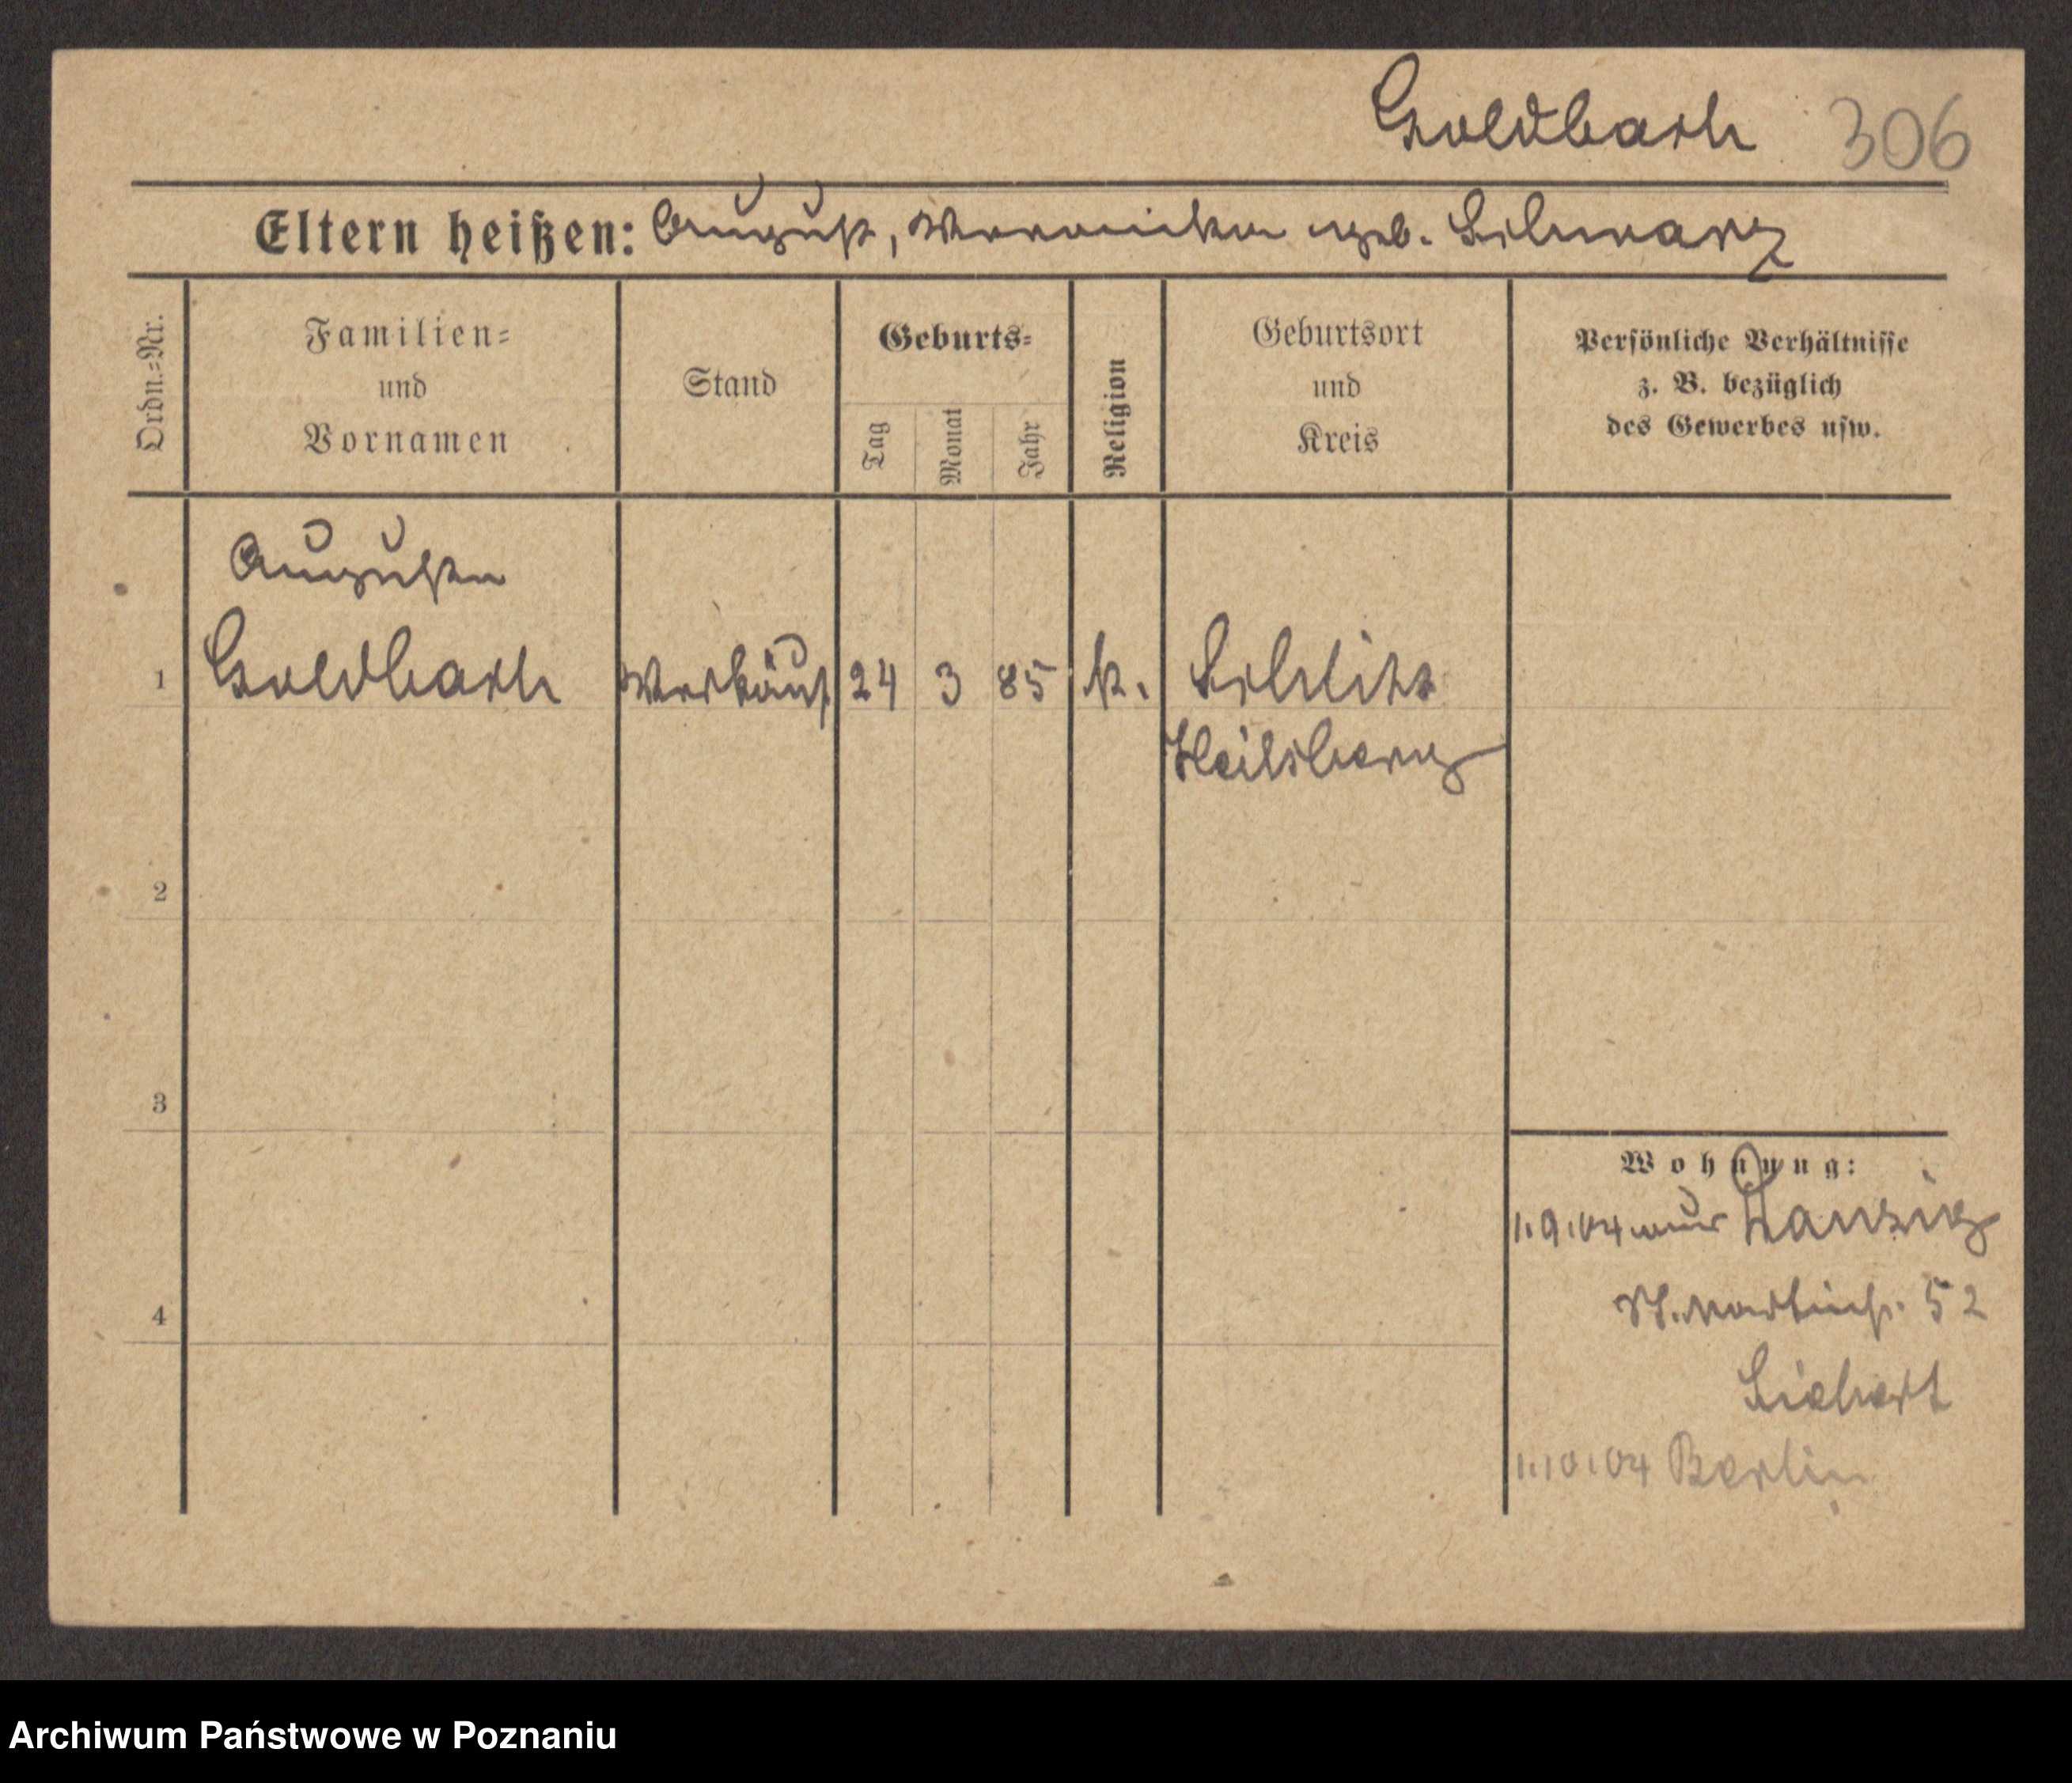 Goldbach 306
Eltern heißen: August, Weronika geb. Schwarz
Ordn.=Nr.
Familien=
und
Vornamen
Stand
Geburts=
Tag
Monat
Jahr
Religion
Geburtsort
und
Kreis
Persönliche Verhältnisse
z. B. bezüglich
des Gewerbes usw.
Auguste
1 Goldbach Verkäuf. 24 3 85 k. Schlitt
Heilsberg
2
3
Wohnung:
1.9.04 aus Danzig
4 St. Martinstr. 52
1.10.04 Berlin
Archiwum Państwowe w Poznaniu